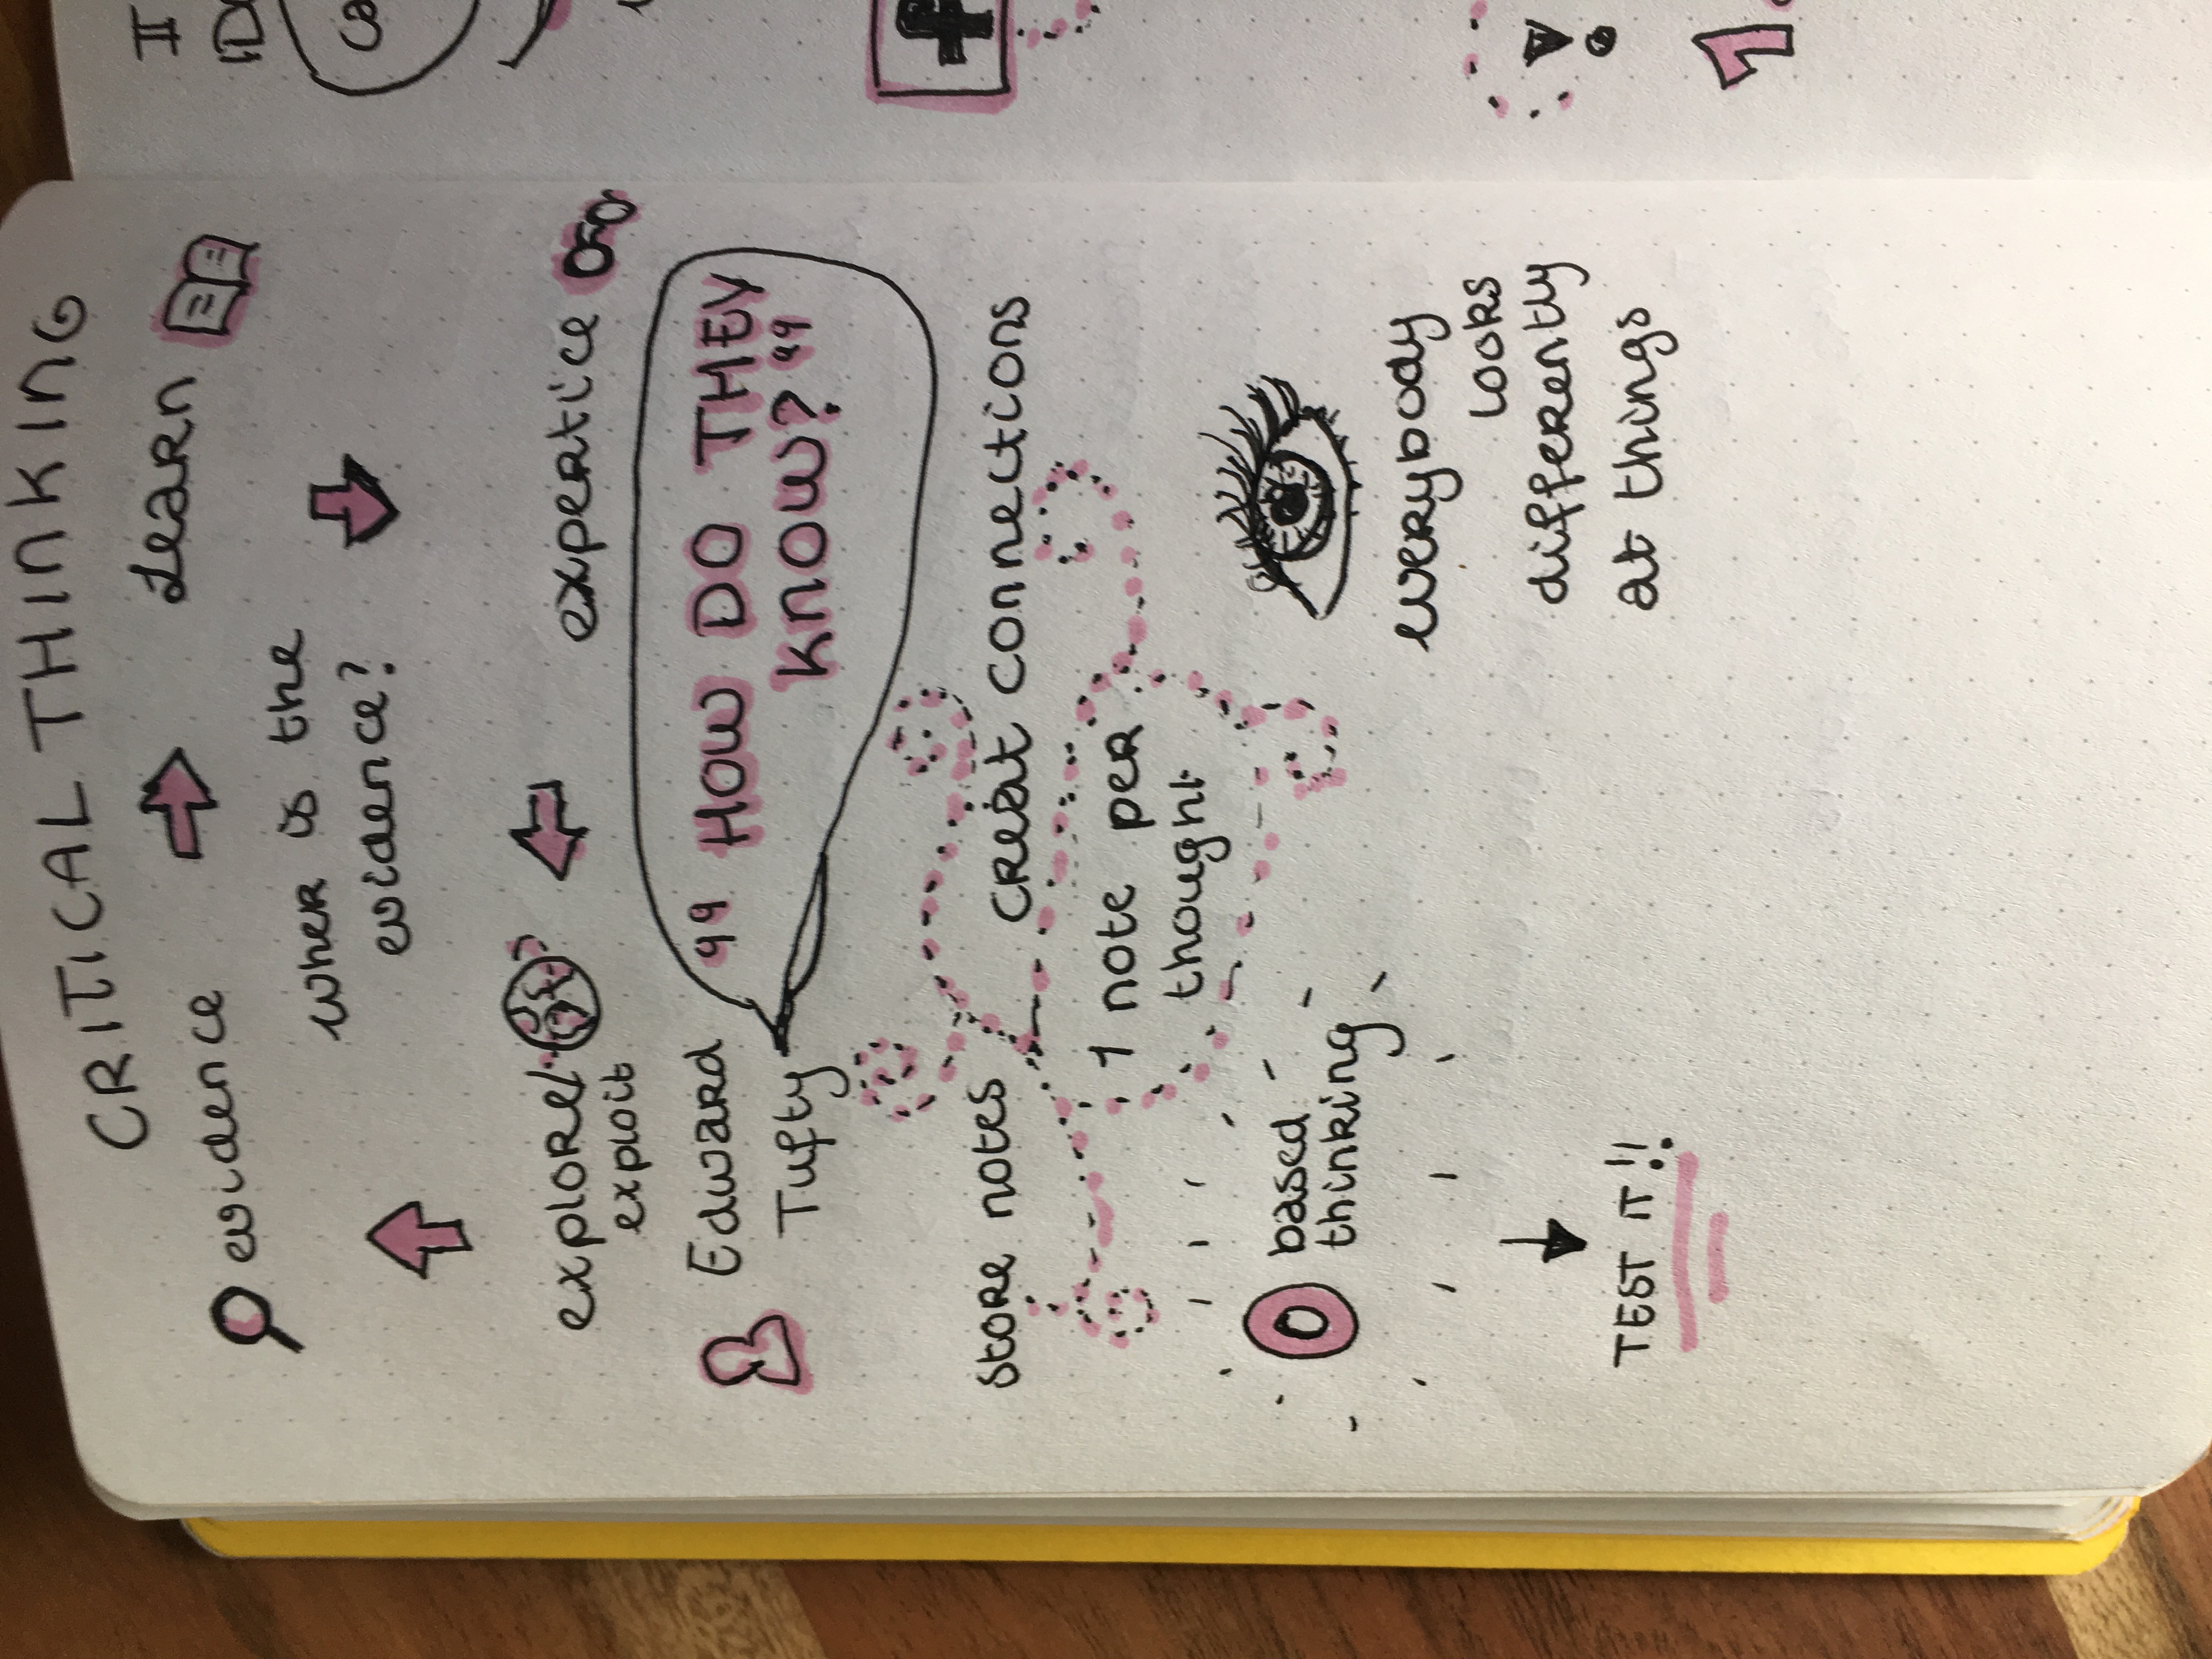 CRITICAL THINKING
evidence
Learn
wher is the
evidence?
explore/
exploit
expertice
Edward
Tufty
" HOW DO THEY
KNOW? "
store notes
creat connections
1 note per
thought
0 based
thinking
everybody
looks
differently
at things
TEST IT!!
II
f
1.